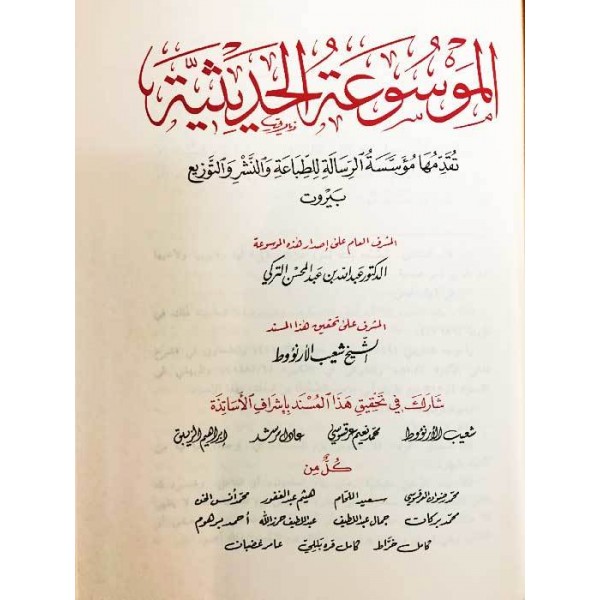 الموسوعة الحديثية
تُقَدِّمُهَا مُؤَسَّسَةُ الرِّسَالَةِ لِلطِّبَاعَةِ وَالنَّشْرِ وَالتَّوْزِيع
بَيْرُوت
المشرف العام على إصدار هذه الموسوعة
الدكتور عبد الله بن عبد المحسن التركي
المشرف على تحقيق هذا المسند
الشيخ شعيب الأرنؤوط
شَارَكَ فِي تَحْقِيقِ هَذَا الْمُسْنَدِ بِإِشْرَافِ الأَسَاتِذَةِ
شعيب الأرنؤوط محمد نعيم عرقسوسي عادل مرشد إبراهيم الزيبق
كُلٌّ مِن
محمد رضوان العرقسوسي سعيد اللحام هيثم عبد الغفور محمد أنس الخن
محمد بركات جمال عبد اللطيف عبد اللطيف حرز الله أحمد برهوم
كامل خراط كامل قره بللي عامر غضبان